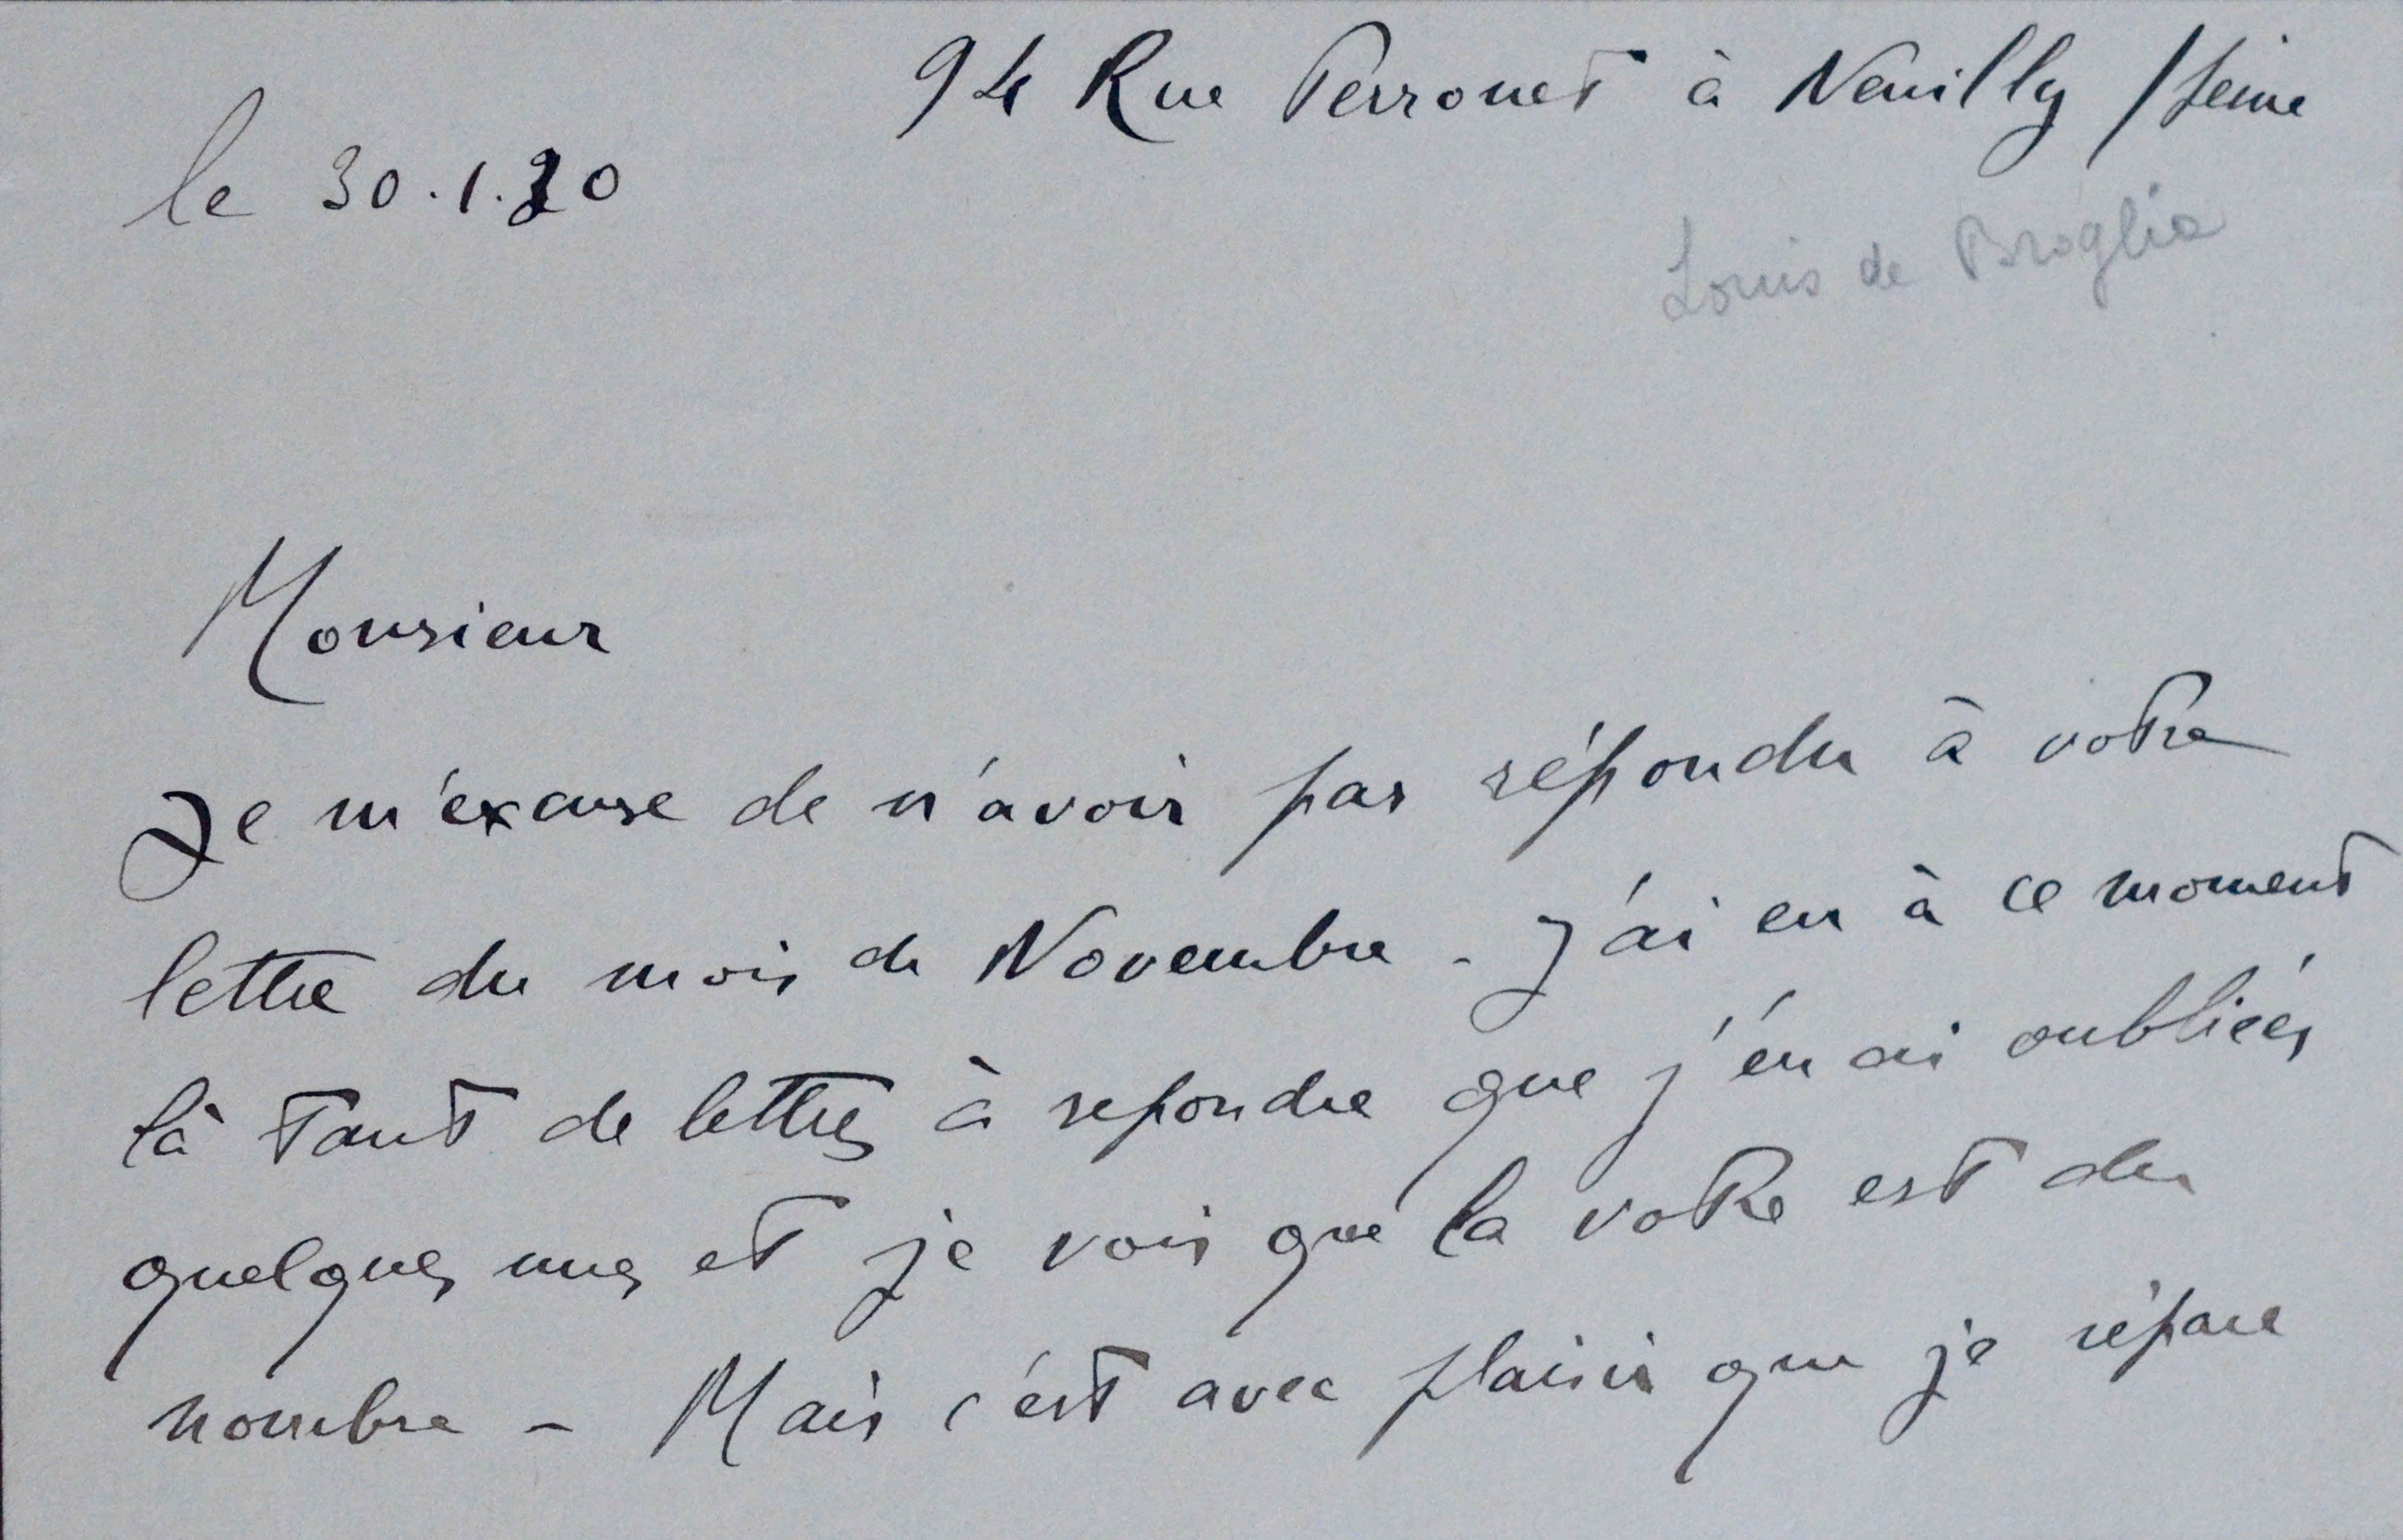 94 Rue Perronet à Neuilly / Seine
le 30.1.30
Louis de Broglie
Monsieur
Je m'excuse de n'avoir pas répondu à votre
lettre du mois de Novembre - J'ai eu à ce moment
là tant de lettres à repondre que j'en ai oubliées
quelques unes et je vois que la votre est du
nombre - Mais c'est avec plaisir que je répare